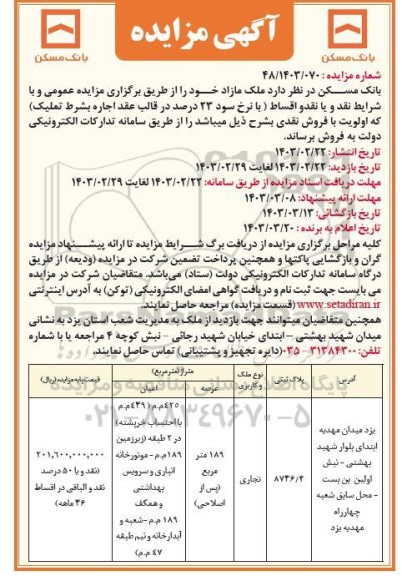 آگهی مزایده
بانک مسکن
بانک مسکن
شماره مزایده : ۴۸/۱۴۰۳/۰۷۰
بانک مسکن در نظر دارد ملک مازاد خود را از طریق برگزاری مزایده عمومی و با
شرایط نقد و یا نقدو اقساط ( با نرخ سود ۲۳ درصد در قالب عقد اجاره بشرط تملیک)
که اولویت با فروش نقدی بشرح ذیل میباشد را از طریق سامانه تدارکات الکترونیکی
دولت به فروش برساند.
تاریخ انتشار: ۱۴۰۳/۰۲/۲۲
تاریخ بازدید: ۱۴۰۳/۰۲/۲۲ لغایت ۱۴۰۳/۰۲/۲۹
مهلت دریافت اسناد مزایده از طریق سامانه: ۱۴۰۳/۰۲/۲۲ لغایت ۱۴۰۳/۰۲/۲۹
مهلت ارائه پیشنهاد: ۱۴۰۳/۰۳/۰۸
تاریخ بازگشائی: ۱۴۰۳/۰۳/۱۳
تاریخ اعلام به برنده : ۱۴۰۳/۰۳/۲۰
کلیه مراحل برگزاری مزایده از دریافت برگ شرایط مزایده تا ارائه پیشنهاد مزایده
گران و بازگشایی پاکتها و همچنین پرداخت تضمین شرکت در مزایده (ودیعه) از طریق
درگاه سامانه تدارکات الکترونیکی دولت (ستاد) می‌باشد. متقاضیان شرکت در مزایده
می بایست جهت ثبت نام و دریافت گواهی امضای الکترونیکی (توکن) به آدرس اینترنتی
www.setadiran.ir (قسمت مزایده) مراجعه حاصل نمایند.
همچنین متقاضیان میتوانند جهت بازدید از ملک به مدیریت شعب استان یزد به نشانی
میدان شهید بهشتی – ابتدای خیابان شهید رجائی – نبش کوچه ۴ مراجعه یا با شماره
تلفن: ۳۱۳۸۴۳۰۰-۰۳۵ (دایره تجهیز و پشتیبانی) تماس حاصل نمایند.
پایگاه اطلاع رسانی مناقصه و مزایده
۰۲۱-۸۸۳۴۹۶۷۰-۵
آدرس
پلاک ثبتی
نوع ملک و کاربری
متراژ (مترمربع)
عرصه
اعیان
قیمت پایه مزایده (ریال)
یزد میدان مهدیه
ابتدای بلوار شهید
بهشتی – نبش
اولین بن بست
- محل سابق شعبه
چهارراه
مهدیه یزد
۸۷۳۶/۴
تجاری
۱۸۹ متر
مربع
(پس از
اصلاحی)
۴۲۵م.م (۴۳۹م.م
با احتساب خرپشته)
در ۲ طبقه (زیرزمین
۱۸۹م.م – موتورخانه
انباری و سرویس
بهداشتی
و همکف
۱۸۹ م.م –شعبه و
آبدارخانه و نیم طبقه
۴۷ م.م)
۲۰۱,۶۰۰,۰۰۰,۰۰۰
(نقد و یا ۵۰ درصد
نقد و الباقی در اقساط
۳۶ ماهه)